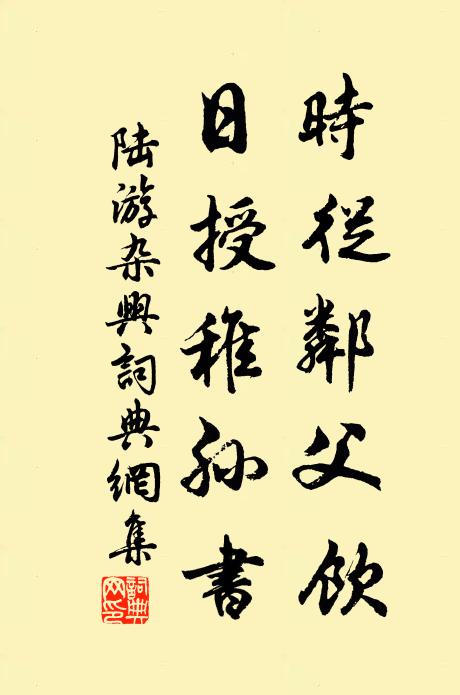 時從鄰父飲
日授稚孫書
陸游杂興詞典網集
詞典网印